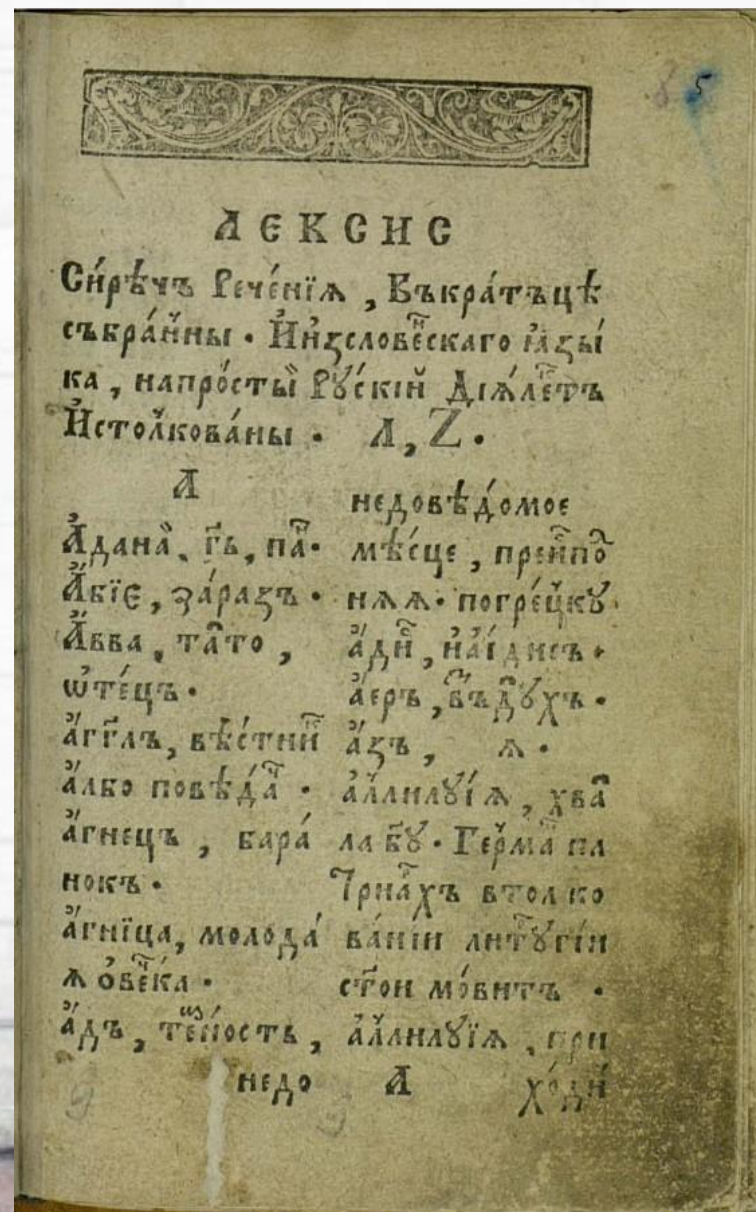 ЛЕКСИС
Си́рѣчъ Рече́нїѧ, Въкра́тъцѣ
събра́нны. И҆и҆ꙁсловѣ́скаго ꙗ҆ꙁы́
ка, напро́сты Рꙋ́скїй Дїѧ́ле́тъ
И҆столкова́ны. А, Z.
А
А҆дана, гь, па.
А҆́бїє, ꙁа́раꙁъ.
А҆́вва, та́то,
ѡ҆те́цъ.
а҆́гглъ, вѣ́стни
а҆́лбо повѣ́да.
а҆́гнецъ, бара́
нокъ.
а҆́гнїца, молода́
ѧ ѻ҆ве́ка.
а҆́дъ, те́ность,
недо
недовѣ́домое
мѣ́сце, преиспо
нѧѧ. погре́цкꙋ
а҆́ди, на́їдисъ.
а҆́еръ, въдꙋхъ.
а҆́ꙁъ, ѧ.
а҆ллилꙋ́їѧ, хва
ла бꙋ. Ге́рма па
трїа́хъ втолко
ва́нїи литꙋ́ргїи
стои мо́витъ.
а҆ллилꙋ́їѧ, при
А ходи́
5